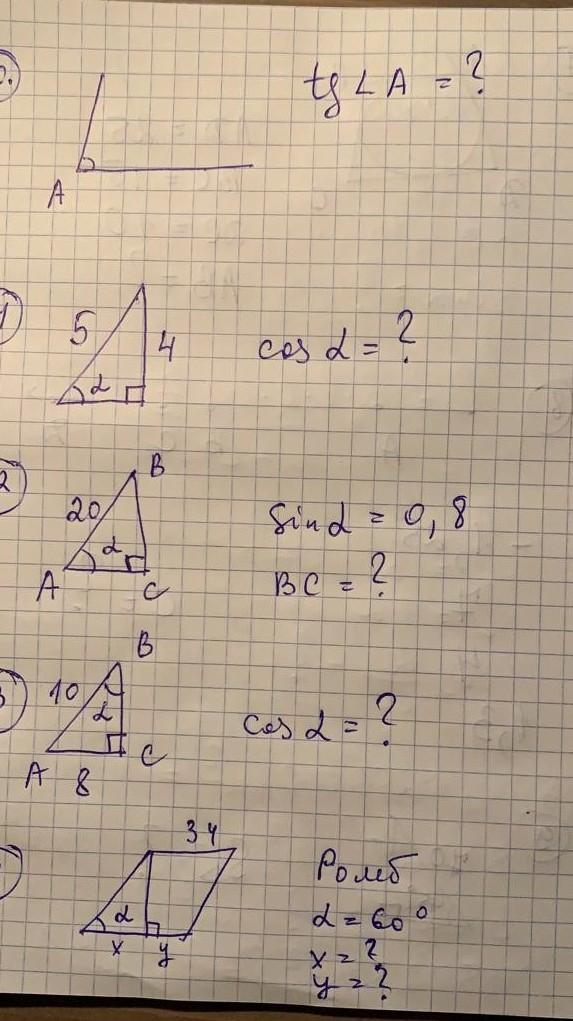 tg ∠ A = ?
A
5
4
α
cos α = ?
B
20
α
A
C
Sin α = 0,8
BC = ?
B
10
α
A
8
C
cos α = ?
34
α
x
y
Ромб
α = 60°
x = ?
y = ?